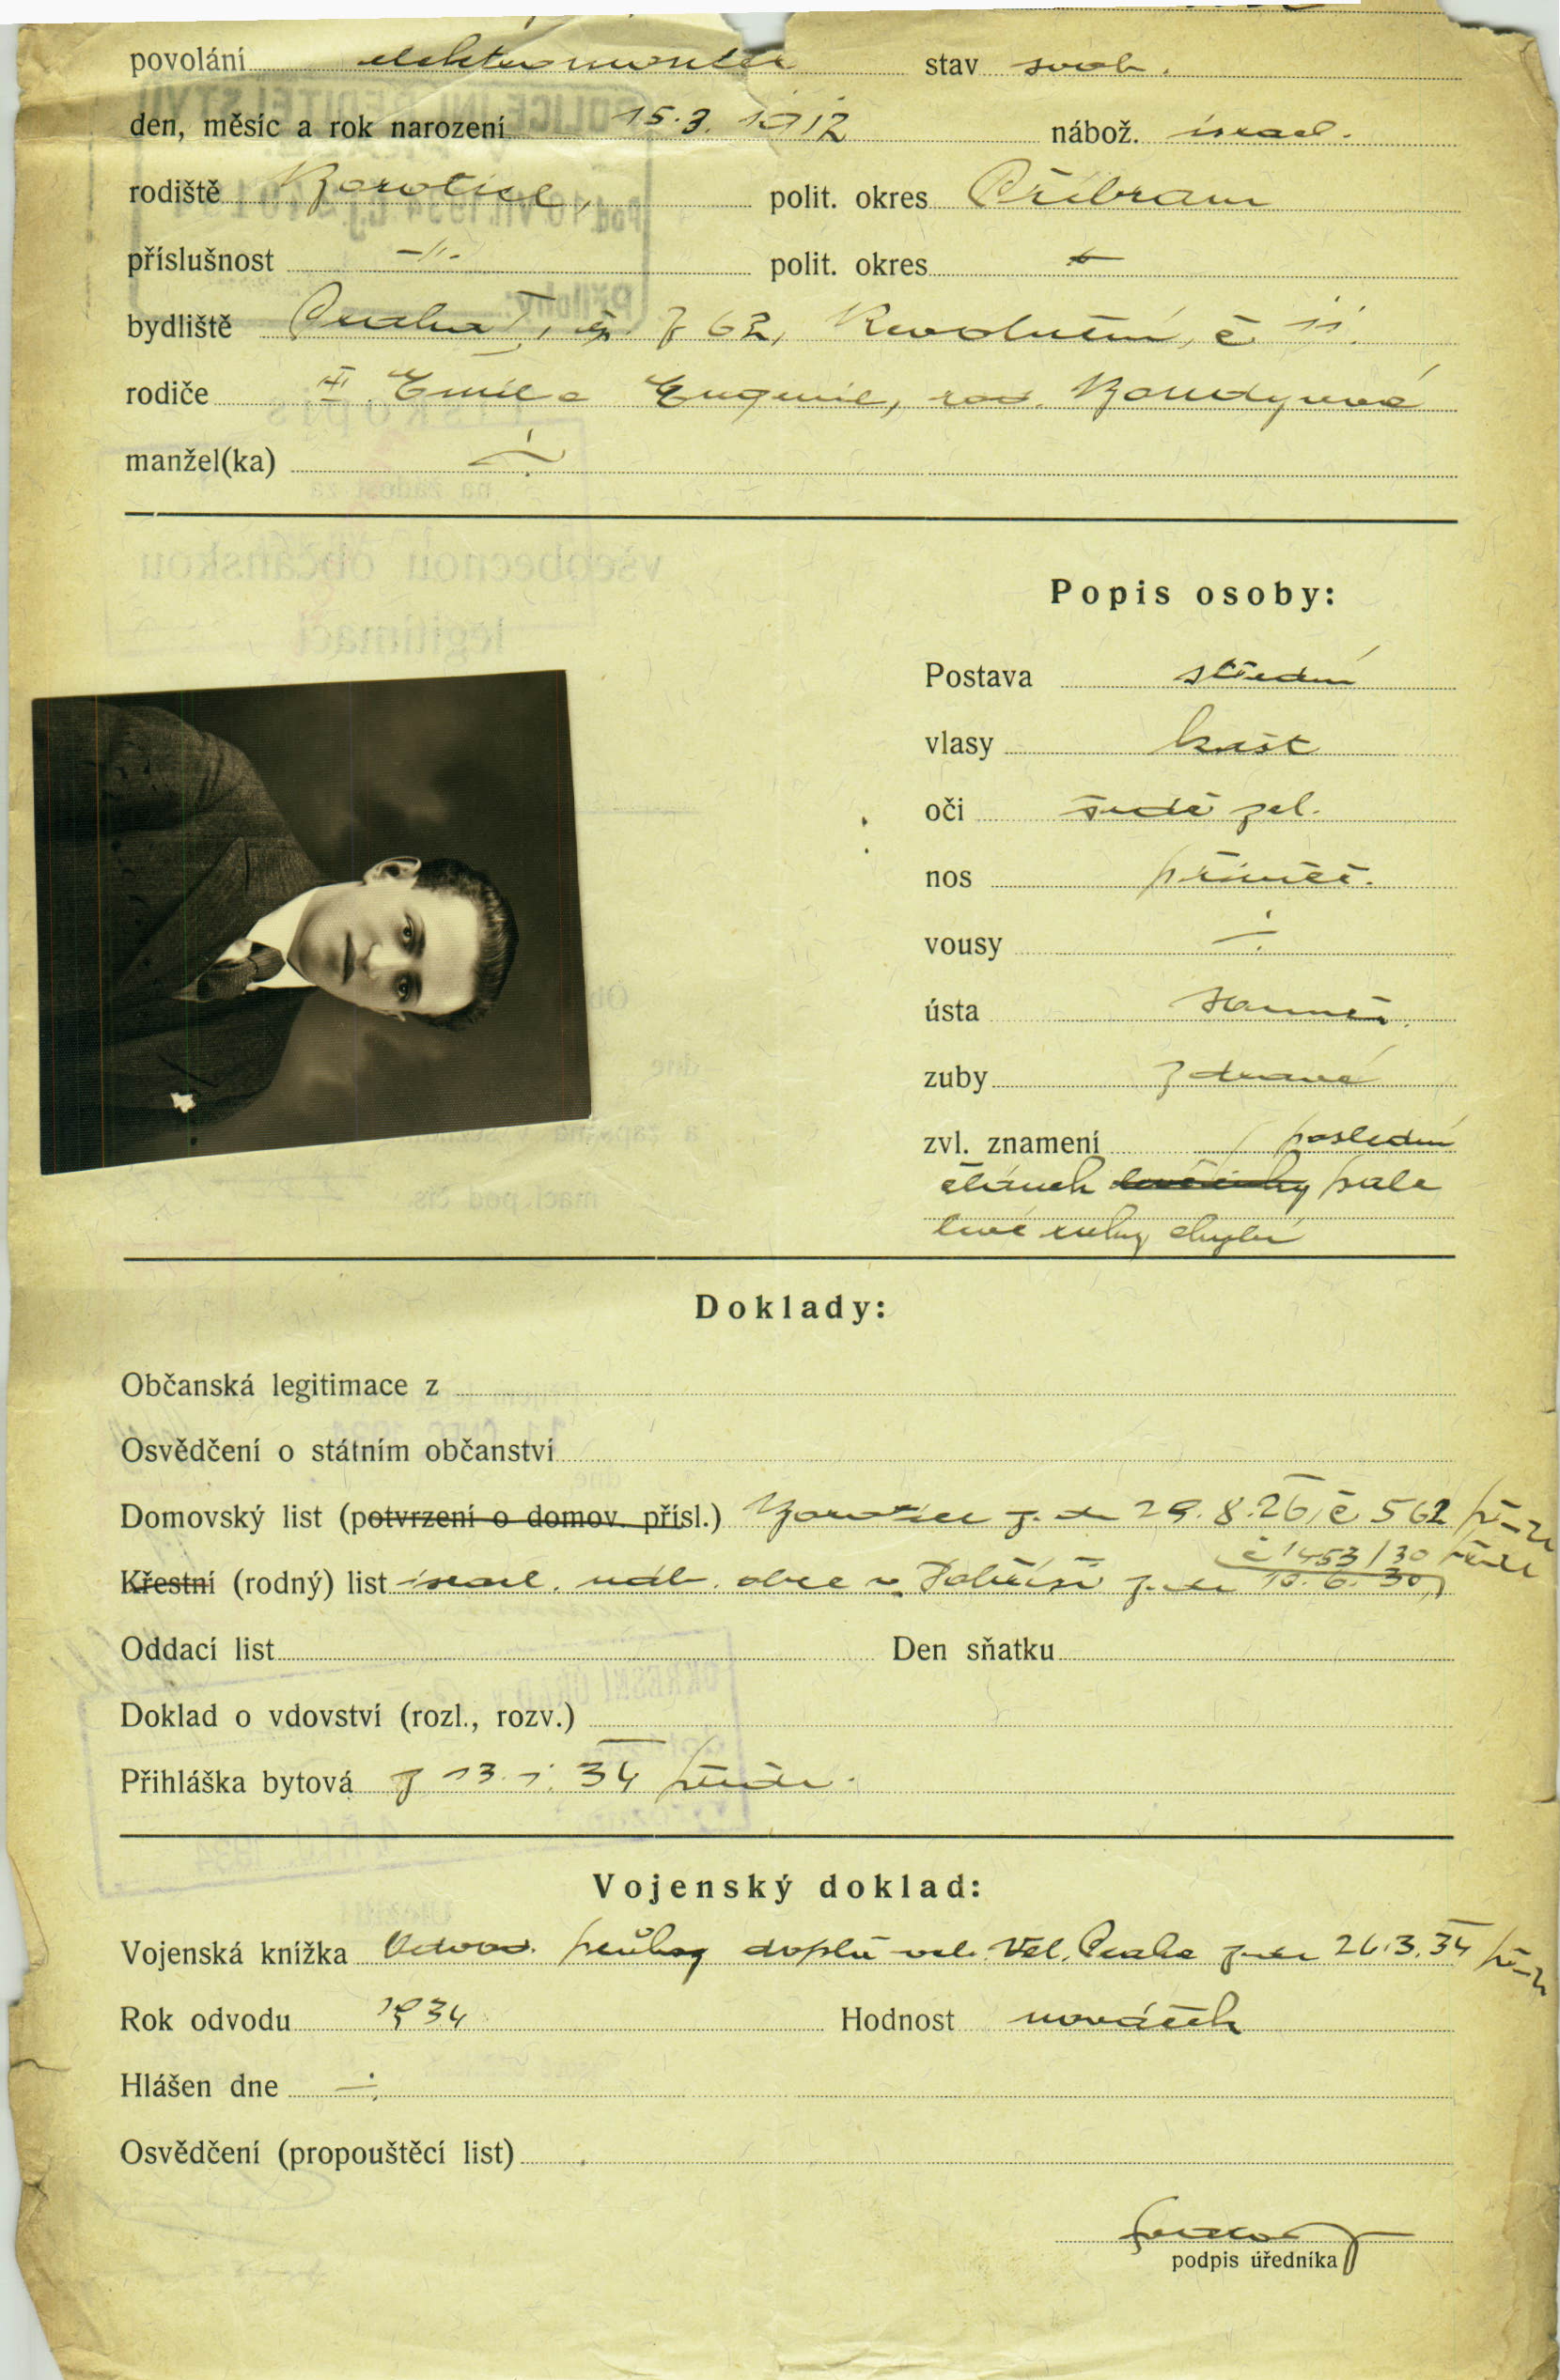 povolání elektromontér stav svob.
den, měsíc a rok narození 15.3. 1912 nábož. israel.
rodiště Borotice, polit. okres Příbram
příslušnost -"- polit. okres
bydliště Praha I, čp. 762, Revoluční, č 11.
rodiče Emil a Eugenie, roz. Bondyová
manžel(ka) ÷
Popis osoby:
Postava střední
vlasy kašt
oči šedé zel.
nos přiměř.
vousy ÷
ústa souměr.
zuby zdravé
zvl. znamení poslední
článek palce
levé ruky chybí
Doklady:
Občanská legitimace z
Osvědčení o státním občanství
Domovský list (potvrzení o domov. přísl.) Borotice z. dne 29.8.26, č 562
č 1453/30
Křestní (rodný) list israel. náb. obce v Dobříši z. dne 10.6.30
Oddací list Den sňatku
Doklad o vdovství (rozl., rozv.)
Přihláška bytová z 13.1.34
Vojenský doklad:
Vojenská knížka Odvod. průkaz doplň. vel. Praha z. dne 26.3.34
Rok odvodu 1934 Hodnost nováček
Hlášen dne ÷
Osvědčení (propouštěcí list)
podpis úředníka